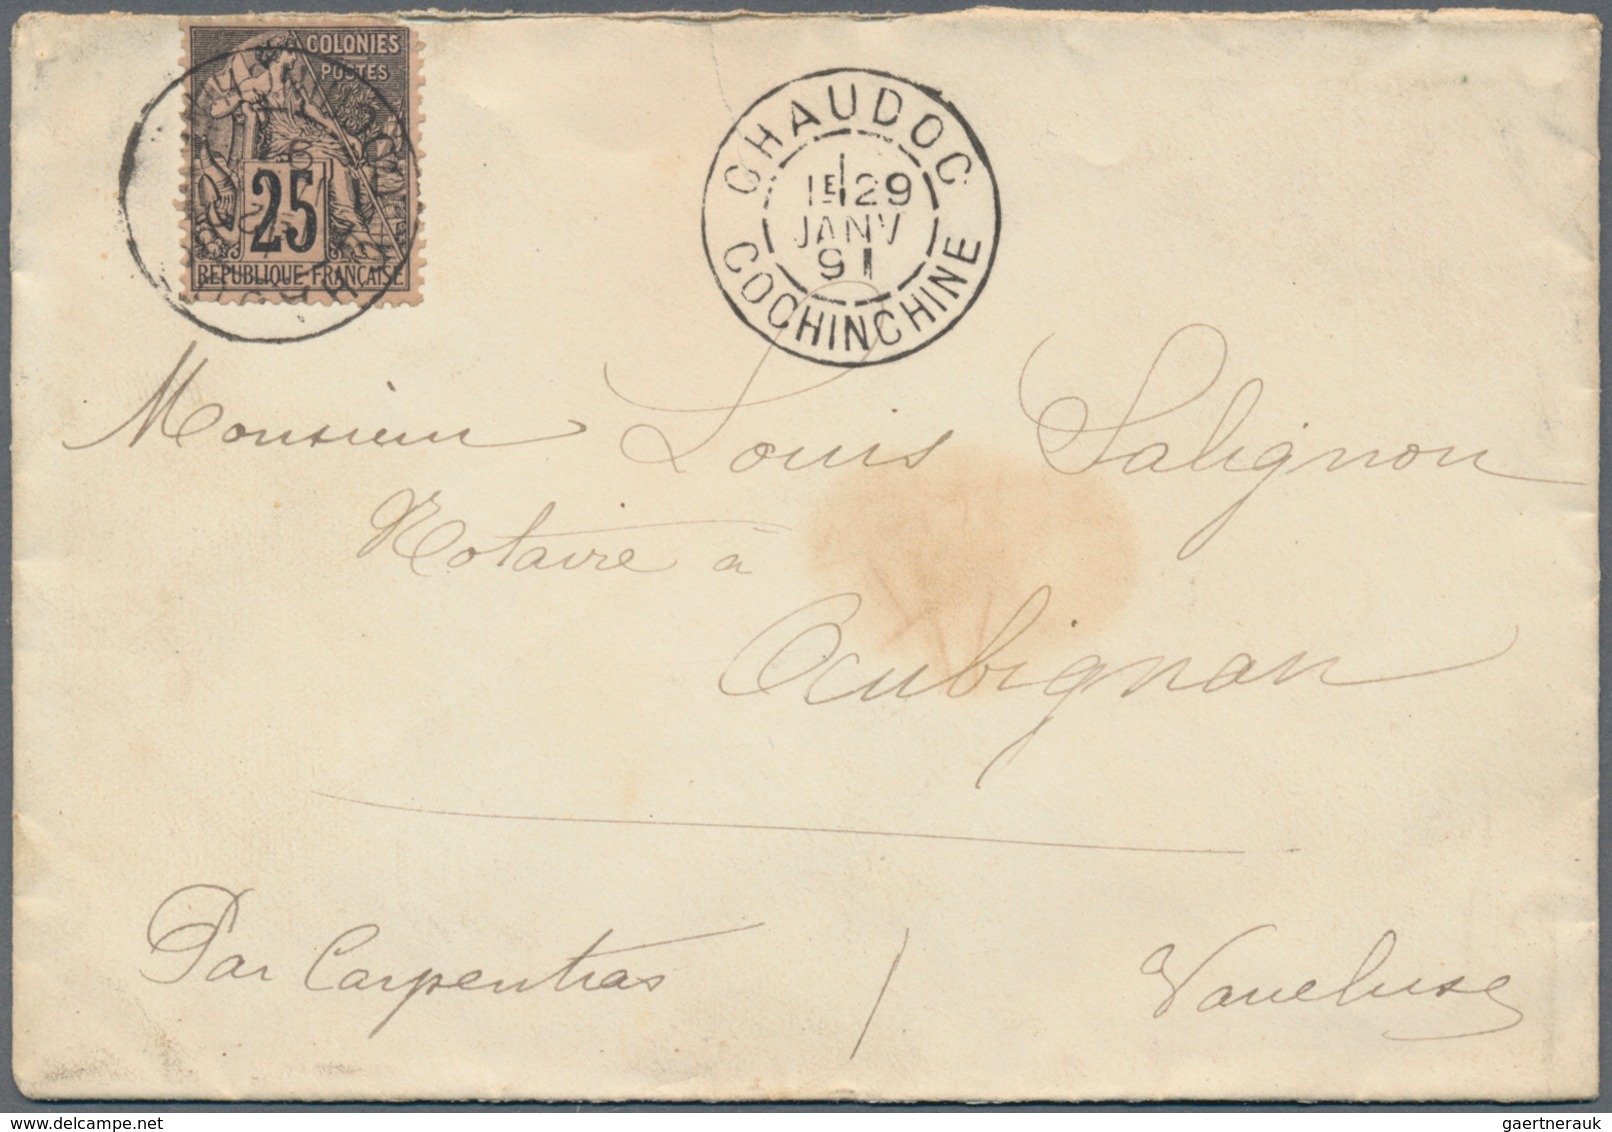 COLONIES
POSTES
25
REPUBLIQUE FRANÇAISE
CHAUDOC
1E 29
JANV
91
COCHINCHINE
Monsieur Louis Salignon
Notaire à
Aubignan
Par Carpentras / Vaucluse
gaertnerauk